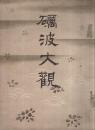 礪波大觀